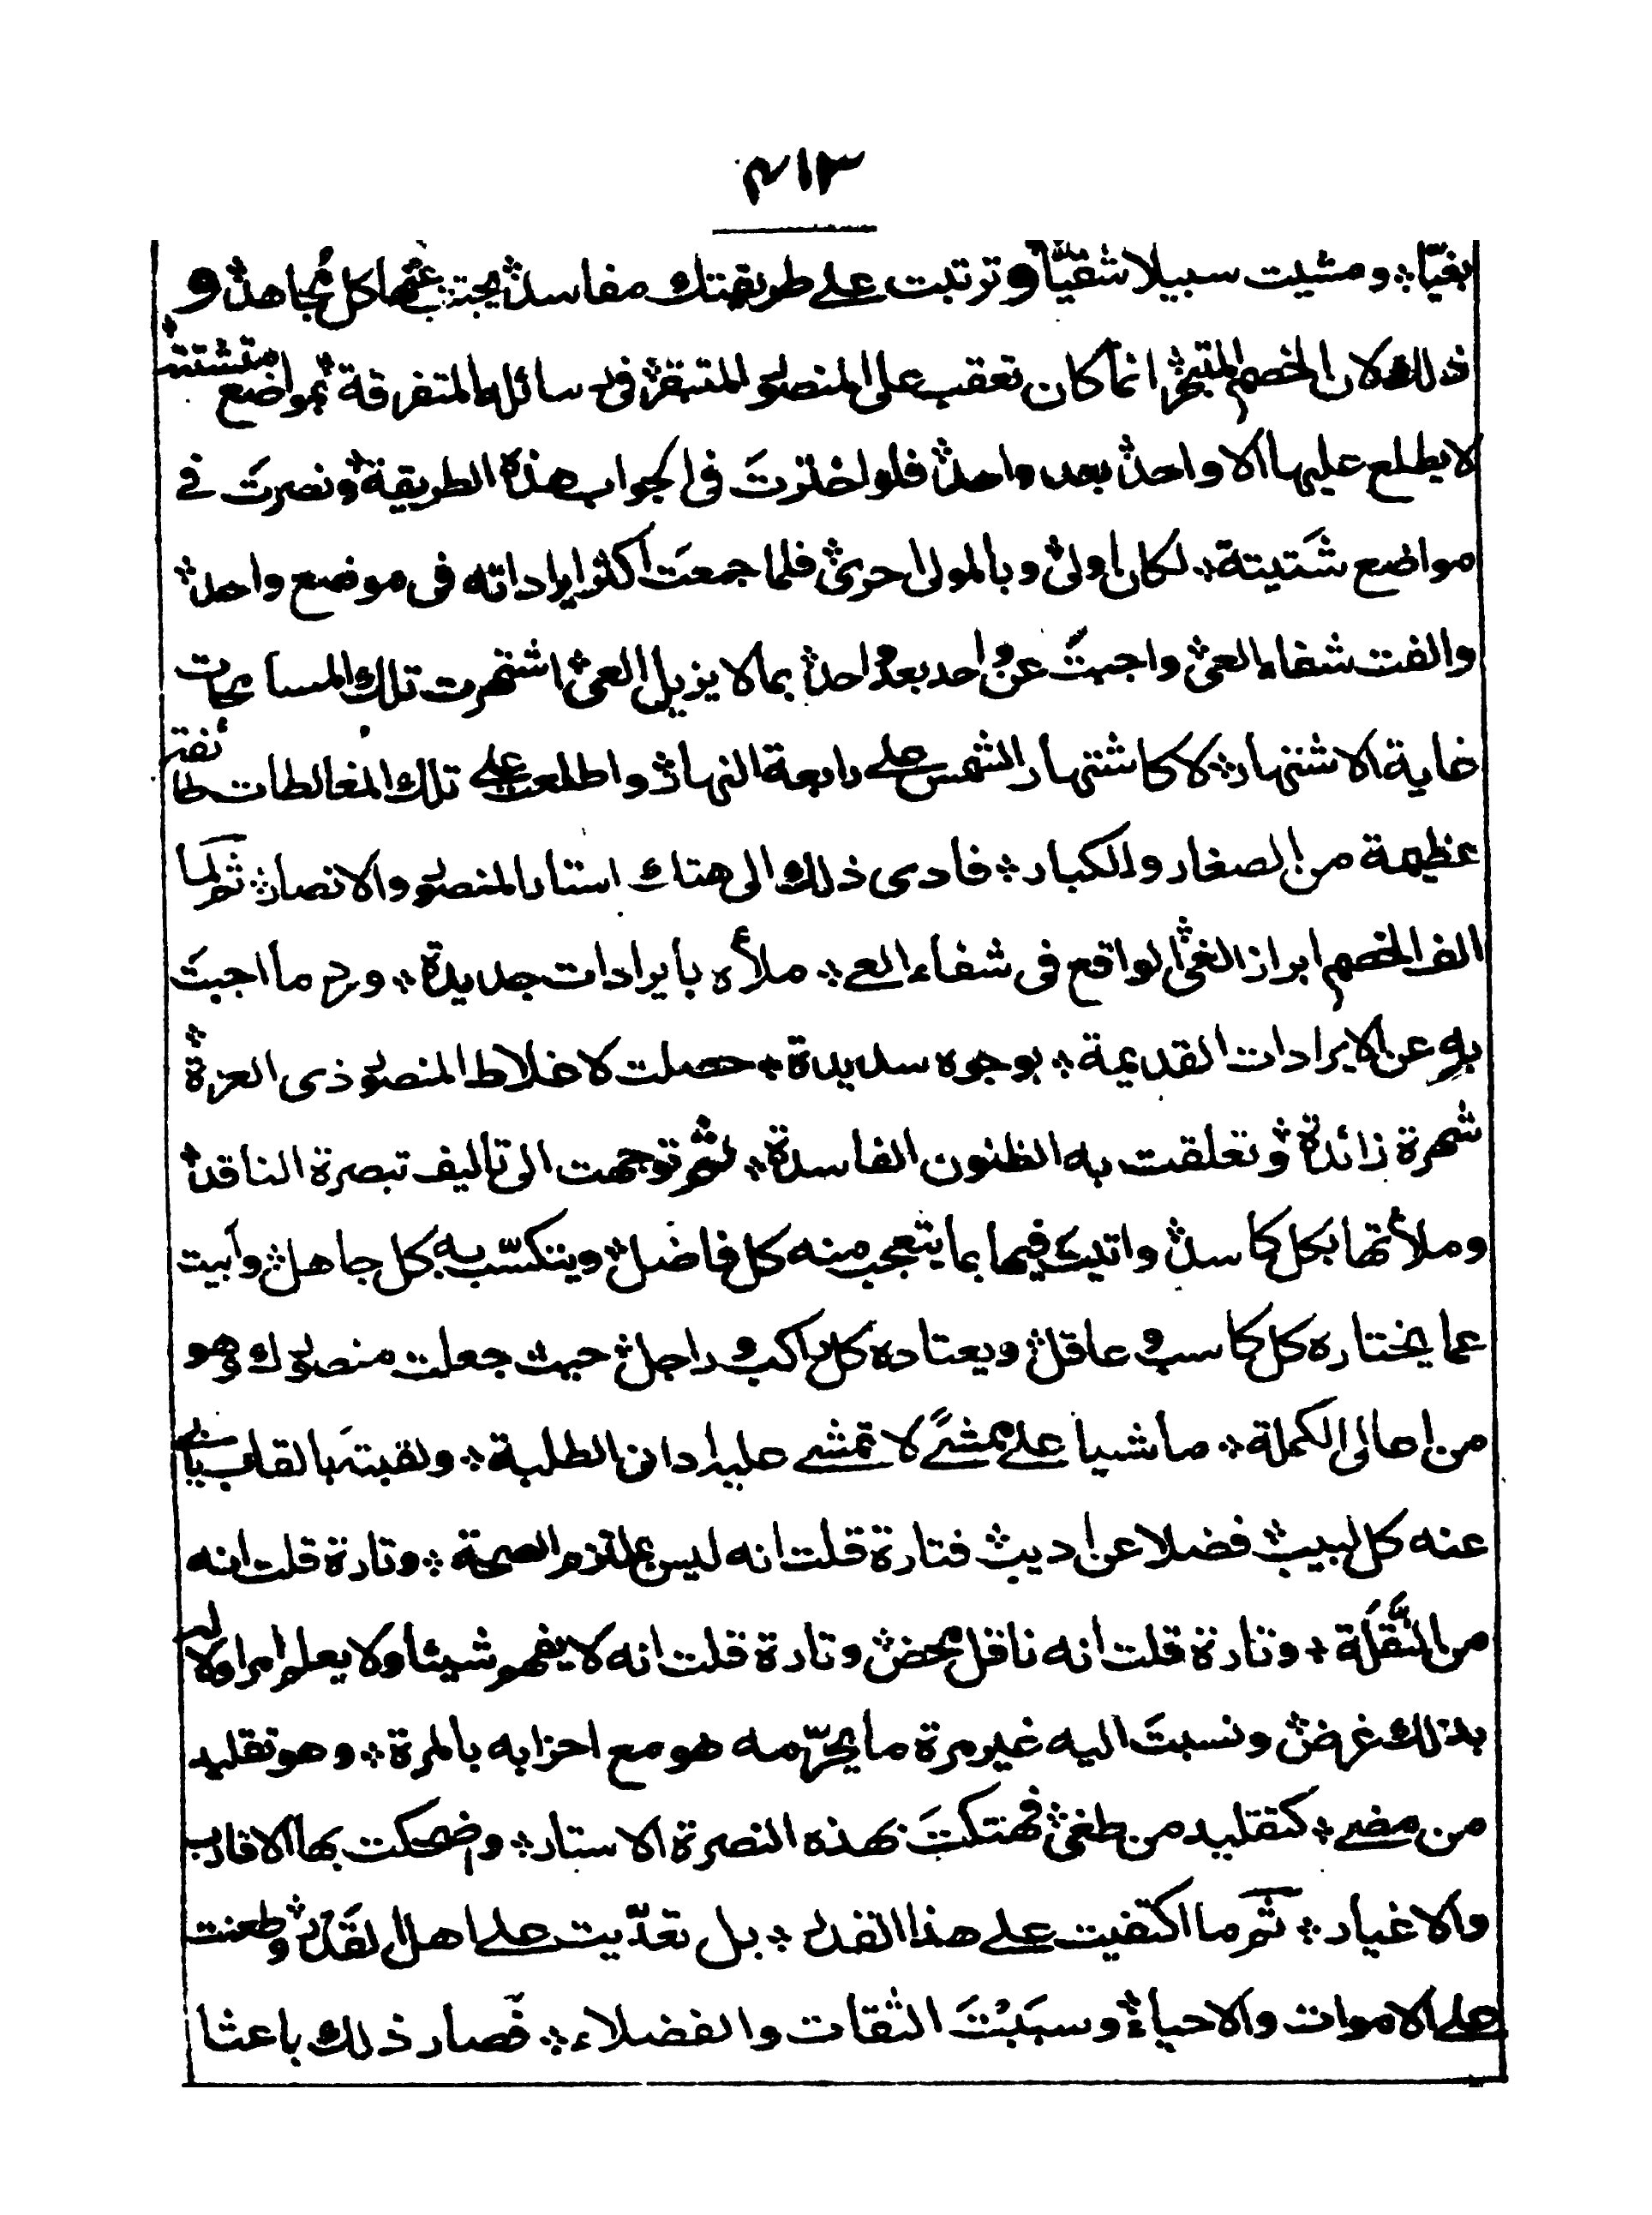 ٤١٣
بغيّا ÷ ومشيت سبيلا شقيّا وترتبت على طريقتك مفاسد ÷ يجتنب عنها كل مجاهد ÷ و
ذلك لان الخصم المتبحر انما كان تعقب على المنصور المتبقر فى رسائله المتفرقة ÷ بمواضع متشتتة ÷
لا يطلع عليها الا واحد ÷ بعد واحد ÷ فلو اخترت فى الجواب هذه الطريقة ÷ ونصرت فى
مواضع شتيتة ÷ لكان اولى ÷ وبالمولى احرى ÷ فلما جمعت اكثر ايراداته فى موضع واحد ÷
والفت شفاء العى ÷ واجبت عن واحد بعد واحد ÷ بما لا يزيل العى ÷ اشتهرت تلك المسامحات
غاية الاشتهار ÷ لا كاشتهار الشمس على رابعة النهار ÷ واطلعت على تلك المغالطات طائفة
عظيمة من الصغار والكبار ÷ فادى ذلك الى هتك استار المنصور والانصار ÷ ثم لما
الف الخصم ابراز الغى الواقع فى شفاء العى ÷ ملأه بايرادات جديدة ÷ ورد ما اجبت
به عن الايرادات القديمة ÷ بوجوه سديدة ÷ حصلت لاغلاط المنصور ذى العزة ÷
شهرة زائدة ÷ وتعلقت به الظنون الفاسدة ÷ ثم توجهت الى تاليف تبصرة الناقد ÷
وملأتها بكل كاسد ÷ واتيت فيها بما يتعجب منه كل فاضل ÷ ويتكسّب به كل جاهل ÷ وأبيت
عما يختاره كل كاسب وعاقل ÷ ويعتاده كل راكب وراجل ÷ حيث جعلت منصورك وهو
من اعالى الكملة ÷ ماشيا على ممشًى لا تمشى عليه ادانى الطلبة ÷ ولقبته بالقاب يابى
عنه كل لبيب ÷ فضلا عن اديب ÷ فتارة قلت انه ليس بملتزم الصحة ÷ وتارة قلت انه
من النَّقَلَة ÷ وتارة قلت انه ناقل محض ÷ وتارة قلت انه لا يفهم شيئا ولا يعلم امرا ولا له
بذلك غرض ÷ ونسبت اليه غير مرة ما يحرّمه هو مع احزابه بالمرة ÷ وهو تقليد
من مضى ÷ كتقليد من طغى ÷ فهتكت بهذه النصرة الاستار ÷ وضحكت بها الاقارب
والاغيار ÷ ثم ما اكتفيت على هذا القدر ÷ بل تعدّيت على اهل القدر ÷ وطعنت
على الاموات والاحياء ÷ وسببت الثقات والفضلاء ÷ فصار ذلك باعثا